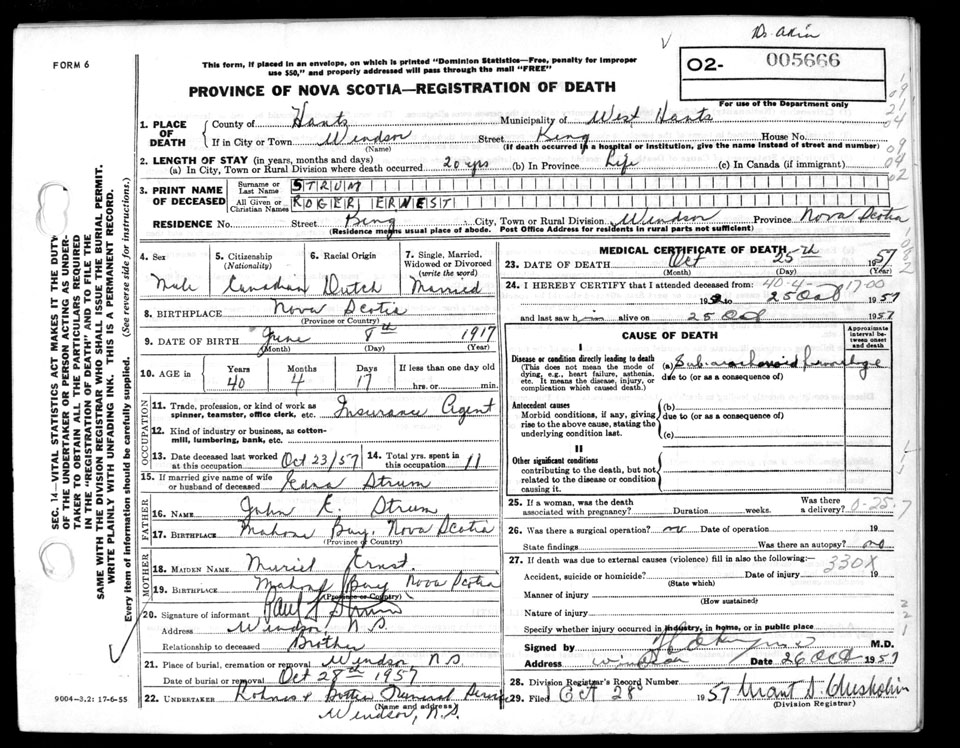 Dr. Akin
FORM 6
This form, if placed in an envelope, on which is printed "Dominion Statistics—Free, penalty for improper
use $50," and properly addressed will pass through the mail "FREE"
O2- 005666
For use of the Department only
PROVINCE OF NOVA SCOTIA—REGISTRATION OF DEATH
1. PLACE OF DEATH County of Hants Municipality of West Hants
If in City or Town Windsor Street King House No.
(Name) (If death occurred in a hospital or institution, give the name instead of street and number)
2. LENGTH OF STAY (in years, months and days)
(a) In City, Town or Rural Division where death occurred 20 yrs (b) In Province Life (c) In Canada (if immigrant)
3. PRINT NAME OF DECEASED Surname or Last Name STRUM
All Given or Christian Names ROGER ERNEST
RESIDENCE No. Street King City, Town or Rural Division Windsor Province Nova Scotia
(Residence means usual place of abode. Post Office Address for residents in rural parts not sufficient)
4. Sex Male
5. Citizenship (Nationality) Canadian
6. Racial Origin Dutch
7. Single, Married, Widowed or Divorced (write the word) Married
8. BIRTHPLACE Nova Scotia
(Province or Country)
9. DATE OF BIRTH June 8th 1917
(Month) (Day) (Year)
10. AGE in Years 40 Months 4 Days 17 If less than one day old hrs. or min.
OCCUPATION
11. Trade, profession, or kind of work as spinner, teamster, office clerk, etc. Insurance Agent
12. Kind of industry or business, as cotton-mill, lumbering, bank, etc.
13. Date deceased last worked at this occupation Oct 23/57 14. Total yrs. spent in this occupation 11
15. If married give name of wife or husband of deceased Edna Strum
FATHER
16. NAME John E. Strum
17. BIRTHPLACE Mahone Bay, Nova Scotia
(Province or Country)
MOTHER
18. MAIDEN NAME Muriel Ernst
19. BIRTHPLACE Mahone Bay Nova Scotia
(Province or Country)
20. Signature of informant Paul Strum
Address Windsor, N S
Relationship to deceased Brother
21. Place of burial, cremation or removal Windsor N.S.
Date of burial or removal Oct 28th 1957
22. UNDERTAKER Funeral Service
(Name and address)
Windsor, N.S.
MEDICAL CERTIFICATE OF DEATH
23. DATE OF DEATH Oct 25th 1957
(Month) (Day) (Year)
24. I HEREBY CERTIFY that I attended deceased from:
40-4-1700
to 25 Oct 1957
and last saw him alive on 25 Oct 1957
CAUSE OF DEATH
Approximate interval between onset and death
I
Disease or condition directly leading to death
(This does not mean the mode of dying, e.g., heart failure, asthenia, etc. It means the disease, injury, or complication which caused death.)
(a) Subarachnoid hemorrhage
due to (or as a consequence of)
Antecedent causes
Morbid conditions, if any, giving rise to the above cause, stating the underlying condition last.
(b)
due to (or as a consequence of)
(c)
II
Other significant conditions
contributing to the death, but not related to the disease or condition causing it.
25. If a woman, was the death associated with pregnancy? Duration weeks. Was there a delivery?
0-25-7
26. Was there a surgical operation? no Date of operation 19
State findings Was there an autopsy? no
27. If death was due to external causes (violence) fill in also the following:—
330X
Accident, suicide or homicide? Date of injury 19
(State which)
Manner of injury
(How sustained)
Nature of injury
Specify whether injury occurred in industry, in home, or in public place
Signed by M.D.
Address Windsor Date 26 Oct 1957
28. Division Registrar's Record Number
29. Filed Oct 28 1957
(Division Registrar)
SEC. 14—VITAL STATISTICS ACT MAKES IT THE DUTY
OF THE UNDERTAKER OR PERSON ACTING AS UNDER-
TAKER TO OBTAIN ALL THE PARTICULARS REQUIRED
IN THE "REGISTRATION OF DEATH" AND TO FILE THE
SAME WITH THE DIVISION REGISTRAR WHO SHALL ISSUE THE BURIAL PERMIT.
WRITE PLAINLY WITH UNFADING INK. THIS IS A PERMANENT RECORD.
Every item of information should be carefully supplied. (See reverse side for instructions.)
9004-3.2: 17-6-55